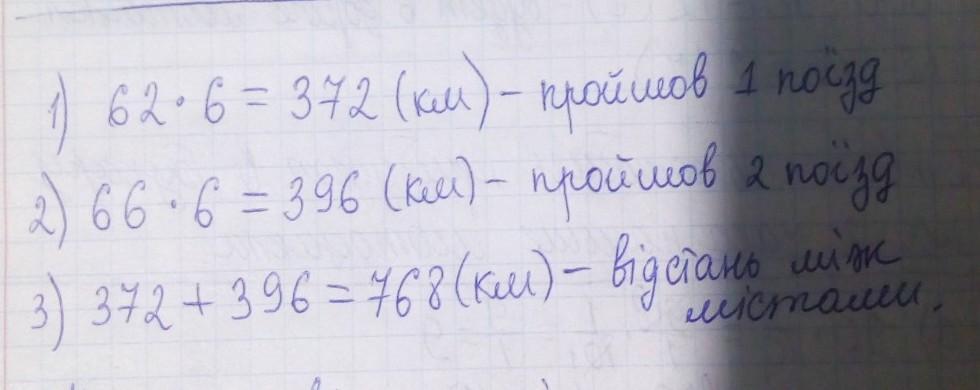 1) 62 · 6 = 372 (км) – пройшов 1 поїзд
2) 66 · 6 = 396 (км) – пройшов 2 поїзд
3) 372 + 396 = 768 (км) – відстань між
містами.